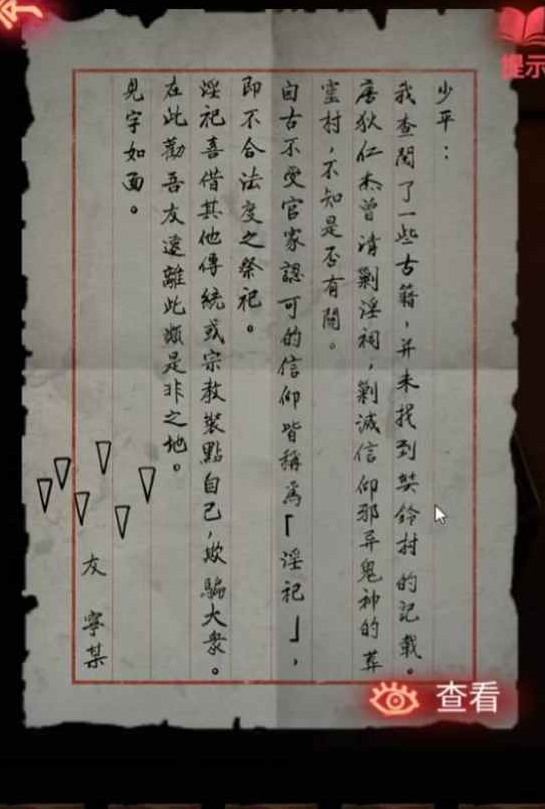 少平：
我查閱了一些古籍，并未找到奘鈴村的記載。
唐狄仁杰曾清剿淫祠，剿滅信仰邪异鬼神的葬
铃村，不知是否有關。
自古不受官家認可的信仰皆稱爲「淫祀」，
即不合法度之祭祀。
淫祀喜借其他傳統或宗教裝點自己，欺騙大衆。
在此勸吾友遠離此類是非之地。
見字如面。
友 寧某
提示
查看